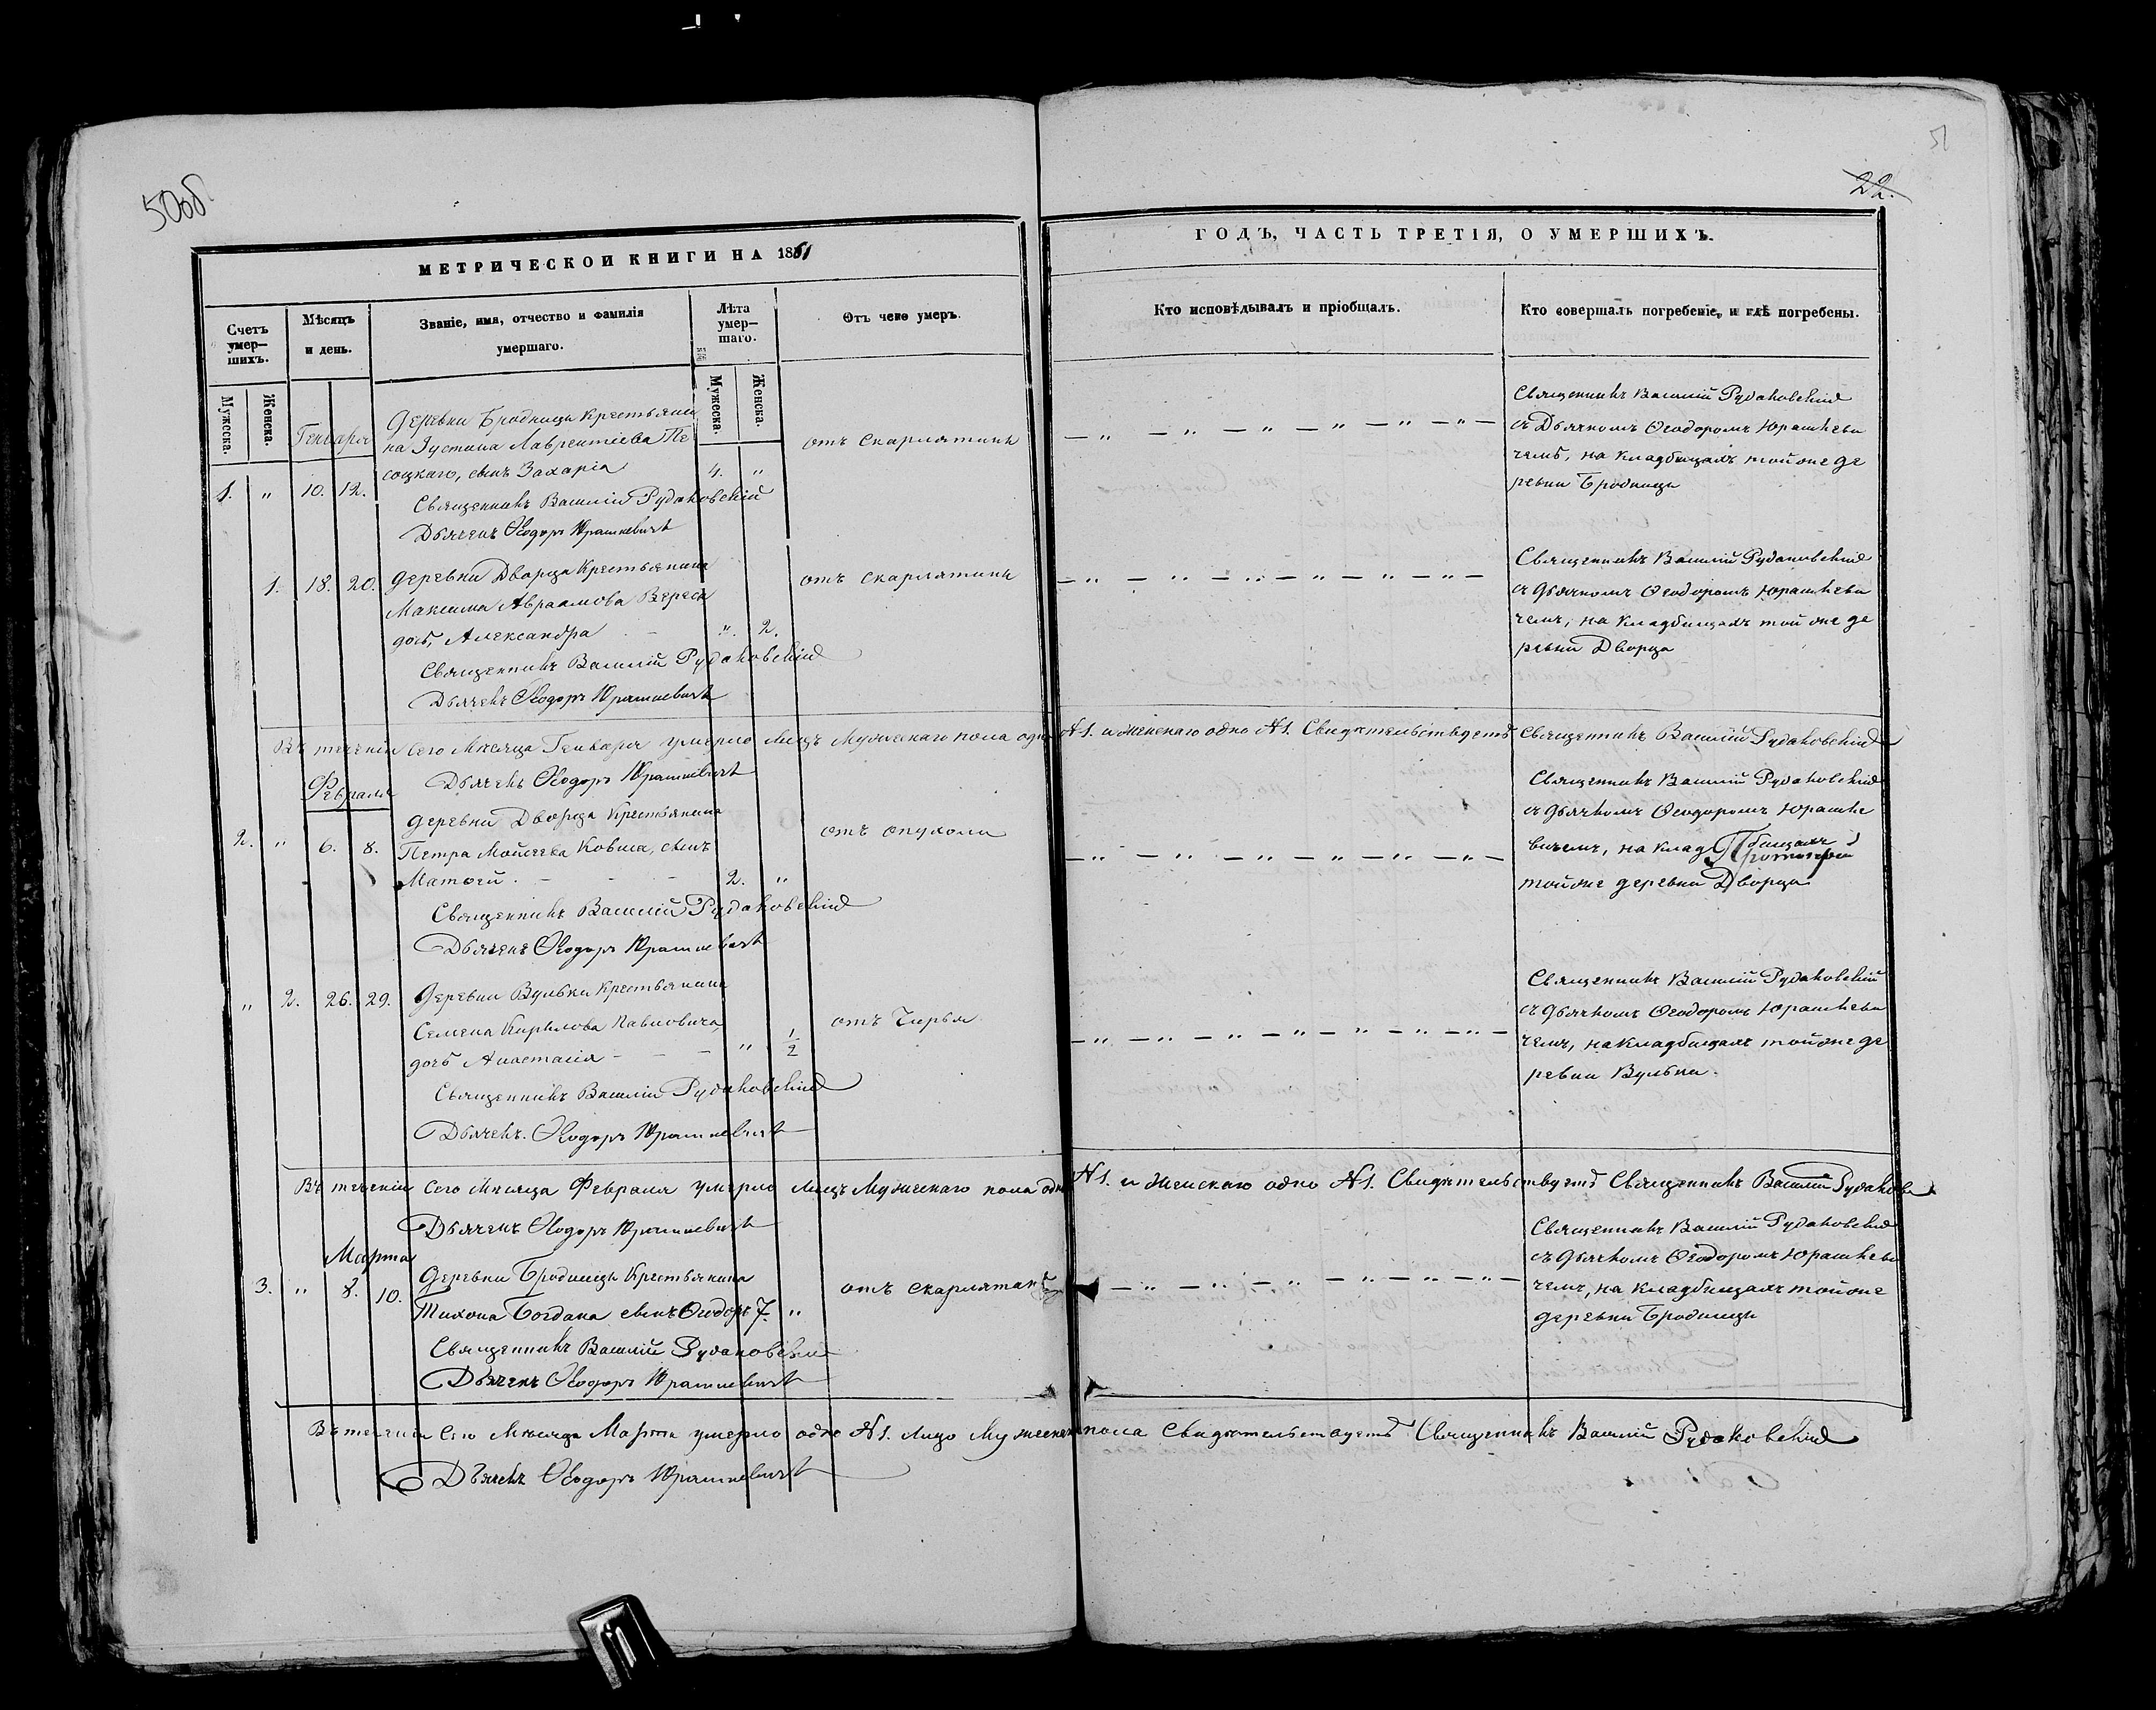 50об.
51
22.
МЕТРИЧЕСКОЙ КНИГИ НА 1851
ГОДЪ, ЧАСТЬ ТРЕТІЯ, О УМЕРШИХЪ.
Счетъ умер-
шихъ.
Мѣсяцъ
и день.
Званіе, имя, отчество и фамилія
умершаго.
Лѣта
умер-
шаго.
Отъ чего умеръ.
Кто исповѣдывалъ и пріобщалъ.
Кто совершалъ погребеніе, и гдѣ погребены.
Мужеска.
Женска.
Мужеска.
Женска.
Генваря
1. " 10. 12.
Деревни Бродницы Крестьяни
на Іустина Лаврентіева Пе
соцкаго, сынъ Захарія 4. "
отъ скарлятины
Священникъ Василій Рудаковскій
Дьячекъ Ѳеодоръ Юрашкевичъ
Священникъ Василій Рудаковскій
съ Дьячкомъ Ѳеодоромъ Юрашкеви
чемъ, на кладбищахъ той же де
ревни Бродницы
1. 18. 20.
Деревни Дворца Крестьянина
Максима Авраамова Вереси
дочь, Александра ". 2.
отъ скарлятины
Священникъ Василій Рудаковскій
Дьячекъ Ѳеодоръ Юрашкевичъ
Священникъ Василій Рудаковскій
съ дьячкомъ Ѳеодоромъ Юрашкеви
чемъ, на кладбищахъ той же де
ревни Дворца
Въ теченіи сего Мѣсяца Генваря умерло лицъ Мужескаго пола одно №1. и женскаго одно №1. Свидѣтельствуетъ Священникъ Василій Рудаковскій
Дьячекъ Ѳеодоръ Юрашкевичъ
Февраля
2. " 6. 8.
Деревни Дворца Крестьянина
Петра Мойсеева Ковша, сынъ
Матѳей. 2. "
отъ опухоли
Священникъ Василій Рудаковскій
Дьячекъ Ѳеодоръ Юрашкевичъ
Священникъ Василій Рудаковскій
съ дьячкомъ Ѳеодоромъ Юрашке
вичемъ, на кладбищахъ
той же деревни Дворца
" 2. 26. 29.
Деревни Вульки Крестьянина
Семена Кирилова Павловича
дочь Анастасія " 1/2
отъ Чирья
Священникъ Василій Рудаковскій
Дьячекъ. Ѳеодоръ Юрашкевичъ
Священникъ Василій Рудаковскій
съ дьячкомъ Ѳеодоромъ Юрашкеви
чемъ, на кладбищахъ той же де
ревни Вульки.
Въ теченіи сего Мѣсяца Февраля умерло лицъ Мужескаго пола одно №1. и женскаго одно №1. Свидѣтельствуетъ Священникъ Василій Рудаковс
Дьячекъ Ѳеодоръ Юрашкевичъ
Марта
3. " 8. 10.
Деревни Бродницы Крестьянина
Тихона Богдана сынъ Ѳеодоръ 7. "
отъ скарлятины
Священникъ Василій Рудаковскій
Дьячекъ Ѳеодоръ Юрашкевичъ
Священникъ Василій Рудаковскій
съ дьячкомъ Ѳеодоромъ Юрашкеви
чемъ, на кладбищахъ той же
деревни Бродницы
Въ теченіи сего Мѣсяца Марта умерло одно №1. лицо Мужескаго пола Свидѣтельствуетъ Священникъ Василій Рудаковскій
Дьячекъ Ѳеодоръ Юрашкевичъ